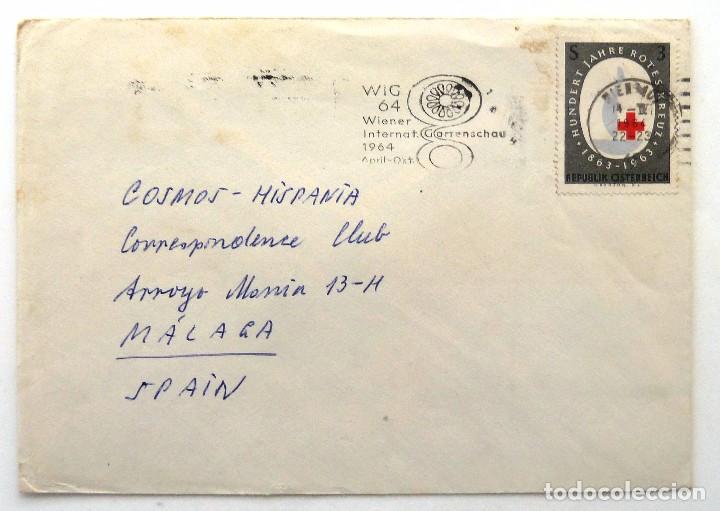 WIG
64
Wiener
Internat. Gartenschau
1964
April-Okt.
S 3
HUNDERT JAHRE ROTES KREUZ
1863-1963
REPUBLIK ÖSTERREICH
WIEN
1964
22-23
COSMOS-HISPANIA
Correspondence Club
Arroyo Mania 13-H
MÁLAGA
SPAIN
todocoleccion